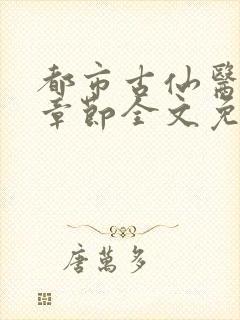 都市古仙醫
章節全文免
唐萬多